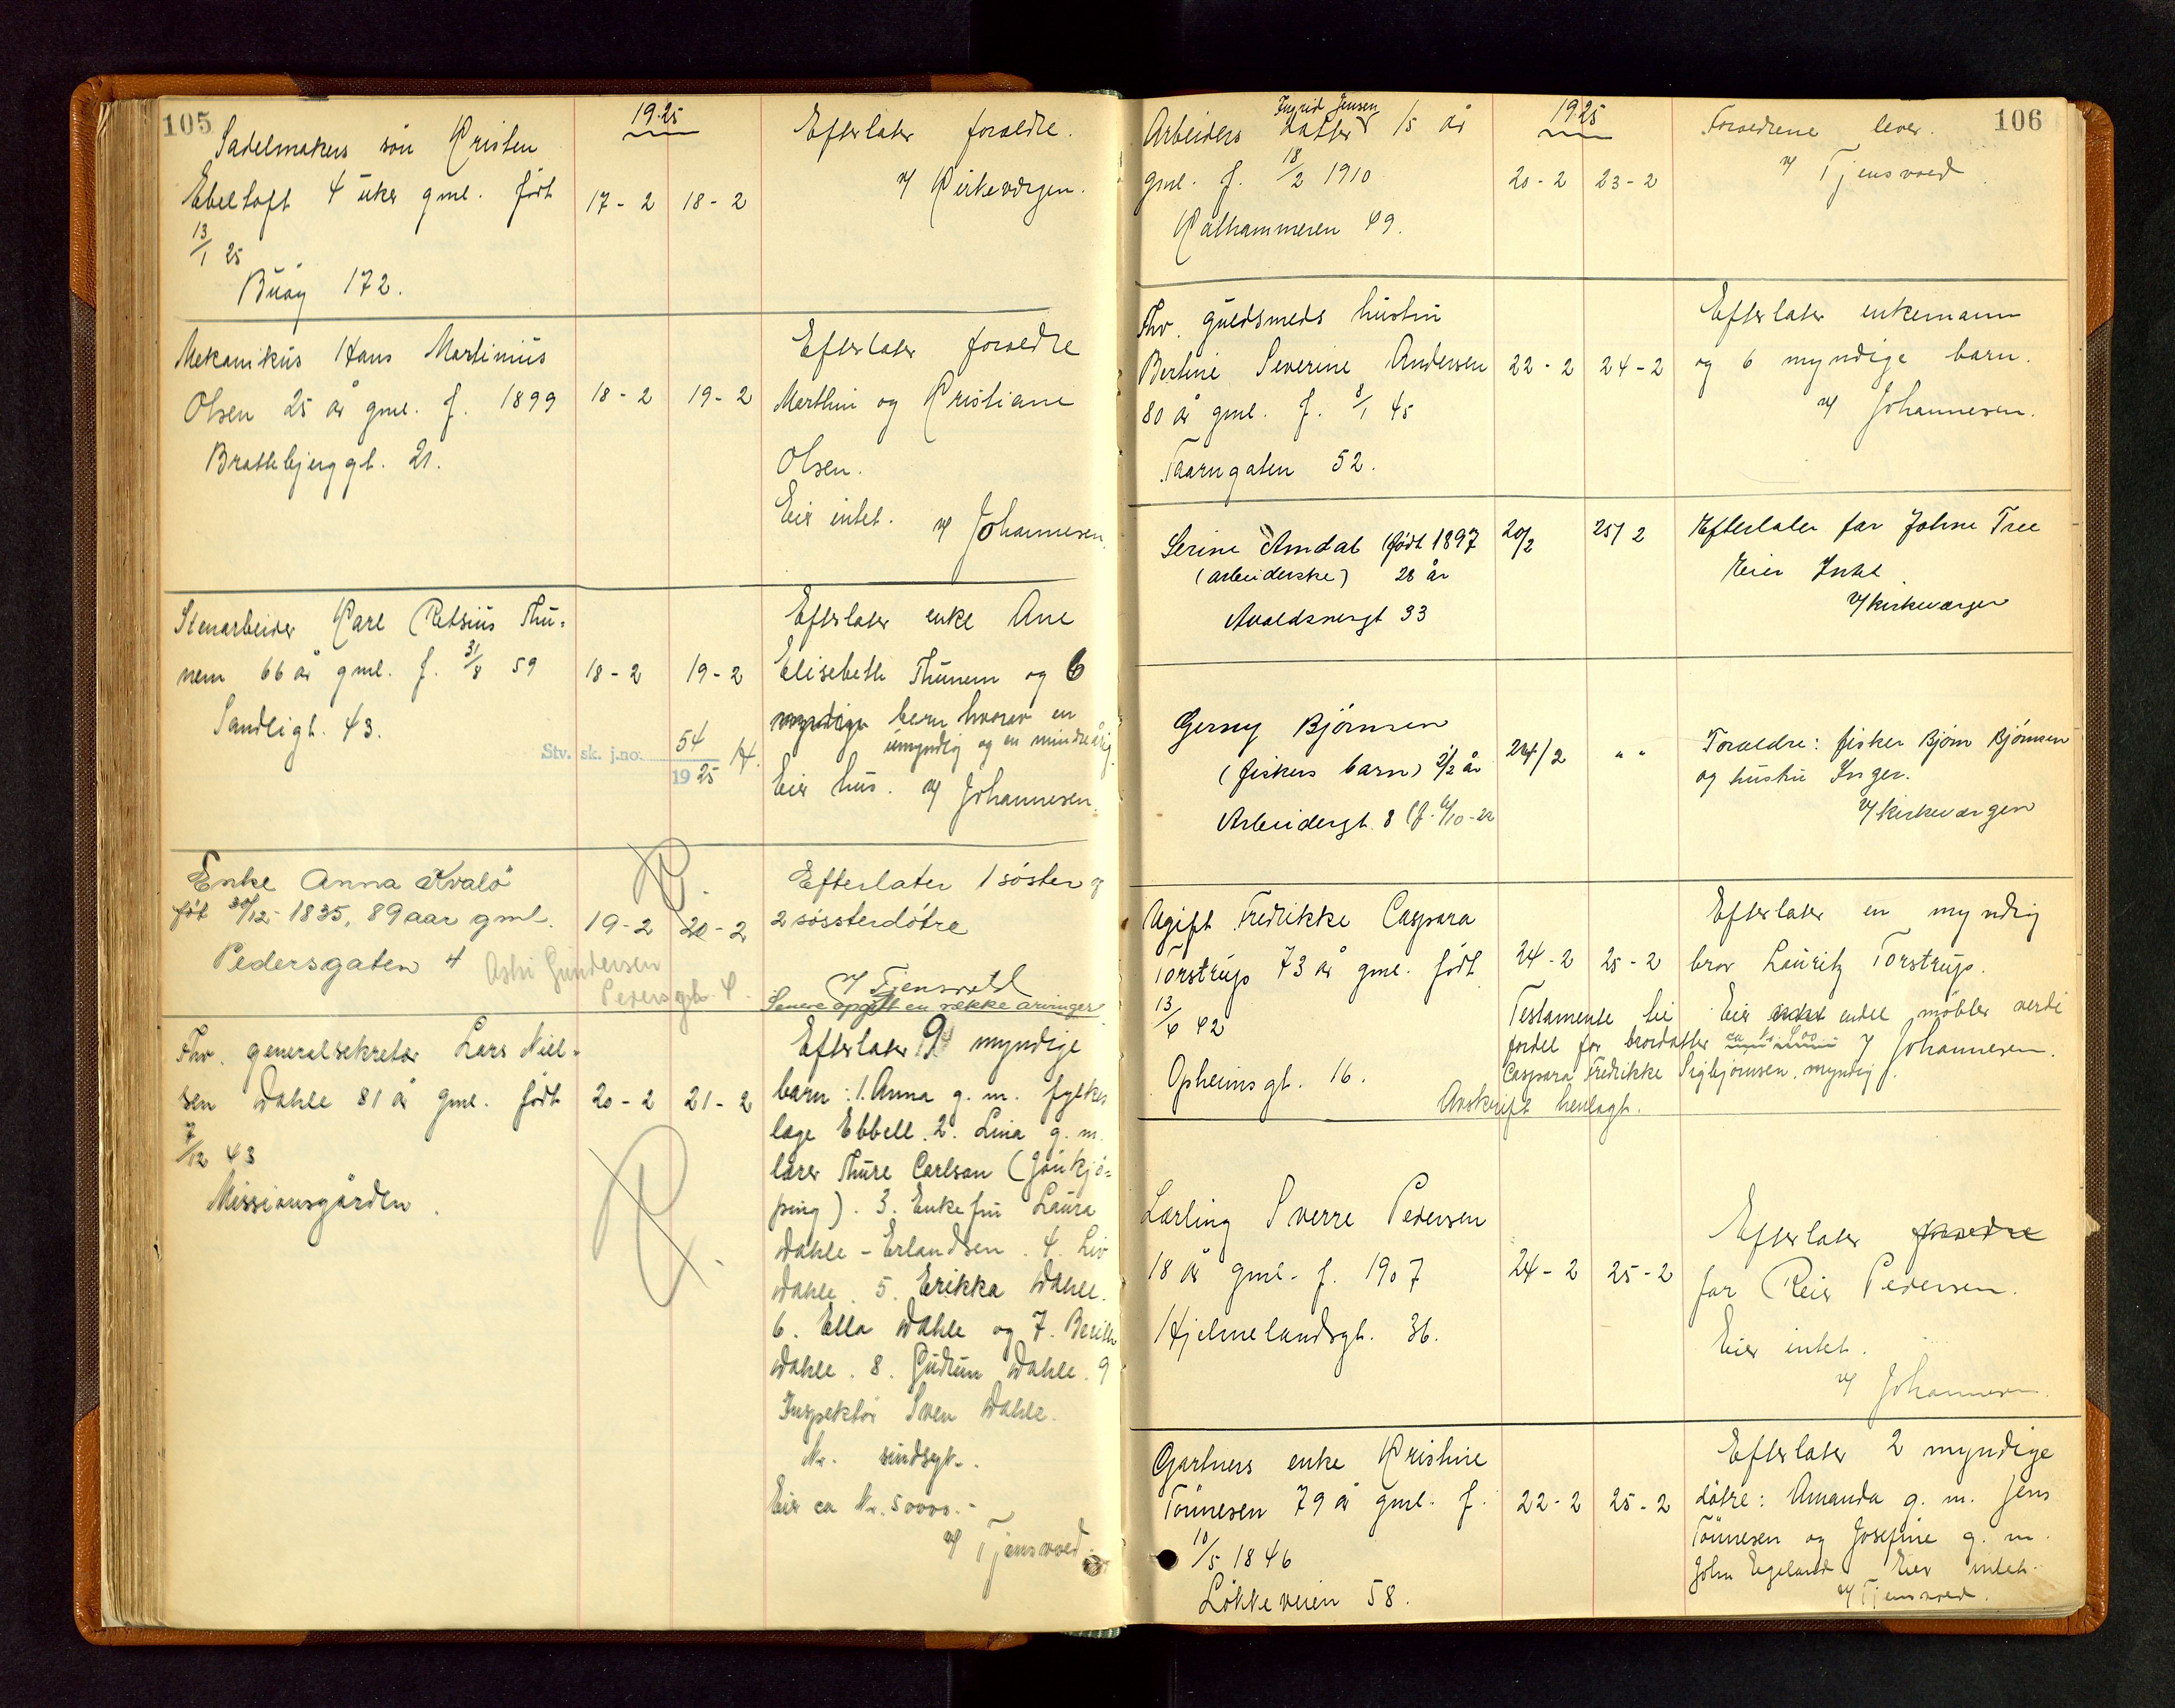 105
1925
Sadelmakers søn Kristen
Ebeltoft 4 uker gml. født
13/1 25
Buøy 172.
17-2 18-2
Efterlater foreldre.
v/ Kirkevergen.
Mekanikus Hans Martinius
Olsen 25 år gml. f. 1899
Brattebjerggt. 21.
18-2 19-2
Efterlater foreldre
Marthin og Kristiane
Olsen.
Eier intet. v/ Johannesen.
Stenarbeider Karl Thu-
nem 66 år gml. f. 31/8 59
Sandligt. 43.
18-2 19-2
Stv. sk. j.no. 54 / 1925 H.
Efterlater enke Ane
Elisebeth Thunem og 6
myndige barn hvorav en
umyndig og en mindreårig.
Eier hus. v/ Johannesen.
Enke Anna Kvalö
føt 30/12-1835, 89 aar gml.
Pedersgaten 4
Astri Gundersen
Pedersgt. 4.
19-2 20-2
Efterlater 1 søster og
2 søssterdøtre
v/ Tjensvold
Senere opgitt en række arvinger
Fhv. generalsekretær Lars Niel-
sen Dahle 81 år gml. født
7/12 43
Missionsgården.
20-2 21-2
Efterlater 9 myndige
barn: 1. Anna g. m. fylkes
læge Ebbell. 2. Lina g. m.
lærer Thure Carlson (Jönkjö-
ping). 3. Enkefru Laura
Dahle - Erlandsen. 4. Liv
Dahle. 5. Erikka Dahle.
6. Ella Dahle og 7. Berith
Dahle. 8. Gudrun Dahle. 9
Inspektør Sven Dahle.
Nr. sindsyk.
Eier ca kr. 50000.-
v/ Tjensvold.
106
1925
Ingrid Jensen
Arbeiders datter 15 år
gml. f. 18/2 1910
Kalhammeren 49.
20-2 23-2
Foreldrene lever.
v/ Tjensvold
Fhv. guldsmeds hustru
Bertine Severine Andersen
80 år gml. f. 8/1 45
Taarngaten 52.
22-2 24-2
Efterlater enkemann
og 6 myndige barn.
v/ Johannesen.
Serine Amdal (født 1897
(arbeiderske) 28 år
Avaldsnesgt 33
20/2 25/2
Efterlater far Johne Tree
Eier Intet
v/ kirkeværgen
Gerny Bjørnsen
(fiskers barn) 2 1/2 år
Arbeidergt. 8
24/2 " "
Foreldre: fisker Bjørn Bjørnsen
og hustru Inger.
v/ kirkeværgen
Ugift Fredrikke Caspara
Torstrup 73 år gml. født
13/6 42
Opheimsgt. 16.
24-2 25-2
Efterlater en myndig
bror Lauritz Torstrup.
Eier endel møbler verdi
ca kr. 400 v/ Johannesen.
Testamente til
fordel for brordatter
Caspara Fredrikke Sigbjørnsen, myndig.
Avskrift henlagt.
Lærling Sverre Pedersen
18 år gml. f. 1907
Hjelmelandsgt. 36.
24-2 25-2
Efterlater foreldre
far Reier Pedersen.
Eier intet.
v/ Johannesen.
Gartners enke Kristine
Tønnesen 79 år gml. f.
10/5 1846
Løkkeveien 58.
22-2 25-2
Efterlater 2 myndige
døtre: Amanda g. m. Jens
Tønnesen og Josefine g. m.
John Egeland. Eier intet.
v/ Tjensvold.